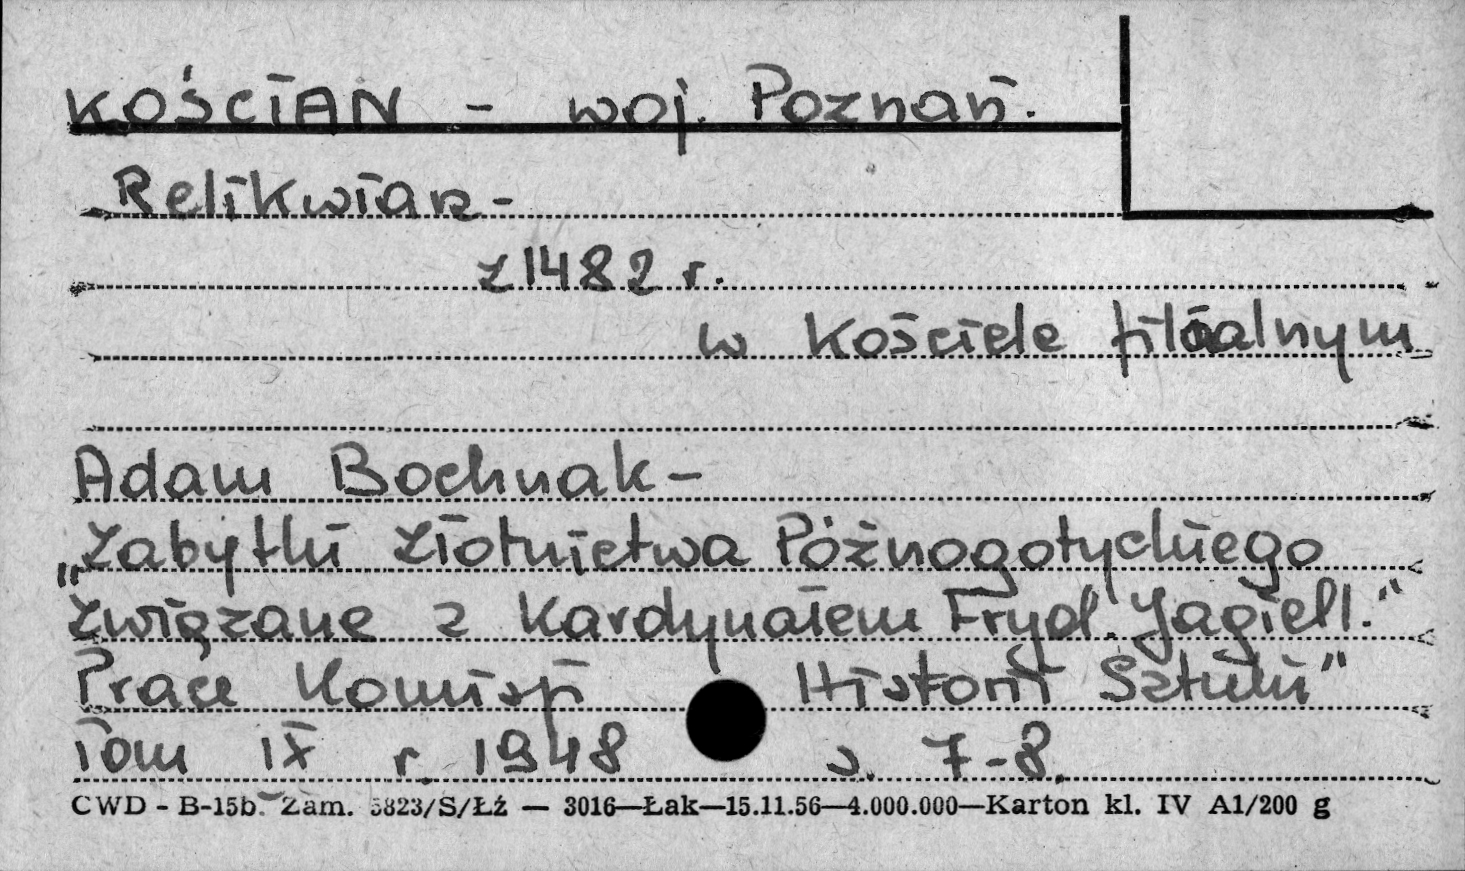 KOŚCIAN - woj. Poznań.
Relikwiarz-
z 1482 r.
w Kościele filialnym
Adam Bochnak -
„Zabytki złotnictwa Późnogotyckiego
związane z Kardynałem Fryd. Jagiell."
Prace Komisji Historii Sztuki"
Tom IX r. 1948 s. 7-8.
CWD - B-15b. Zam. 5823/S/Łź — 3016—Łak—15.11.56—4.000.000—Karton kl. IV A1/200 g